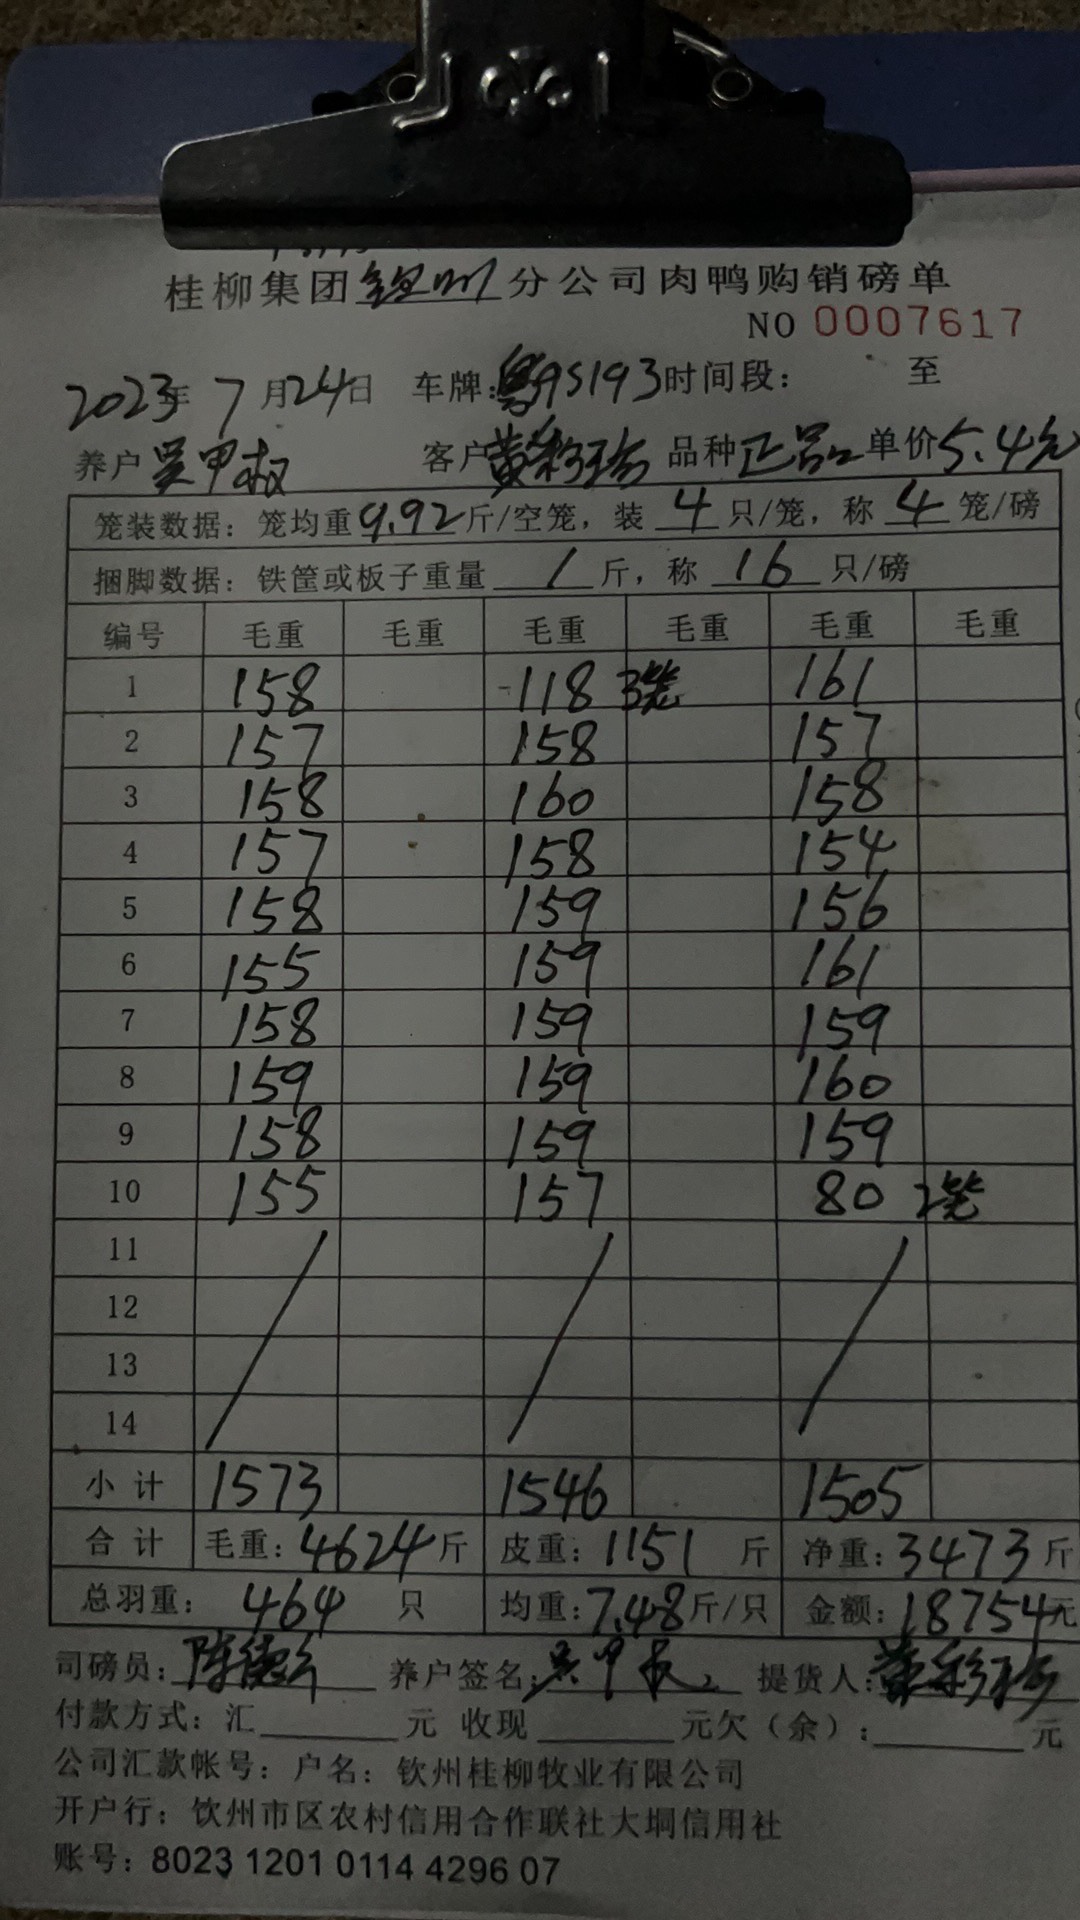 桂柳集团钦州分公司肉鸭购销磅单
NO 0007617
2023年 7月24日 车牌:粤95193 时间段: 至
养户 吴甲权 客户 黄彩珍 品种 正品 单价 5.4元
笼装数据: 笼均重 9.92 斤/空笼, 装 4 只/笼, 称 4 笼/磅
捆脚数据: 铁筐或板子重量 1 斤, 称 16 只/磅
编号 毛重 毛重 毛重 毛重 毛重 毛重
1 158 118 3笼 161
2 157 158 157
3 158 160 158
4 157 158 154
5 158 159 156
6 155 159 161
7 158 159 159
8 159 159 160
9 158 159 159
10 155 157 80 2笼
11
12
13
14
小计 1573 1546 1505
合计 毛重: 4624 斤 皮重: 1151 斤 净重: 3473 斤
总羽重: 464 只 均重: 7.48 斤/只 金额: 18754元
司磅员: 养户签名: 提货人: 黄彩珍
付款方式: 汇 元 收现 元欠(余): 元
公司汇款帐号: 户名: 钦州桂柳牧业有限公司
开户行: 钦州市区农村信用合作联社大垌信用社
账号: 8023 1201 0114 4296 07